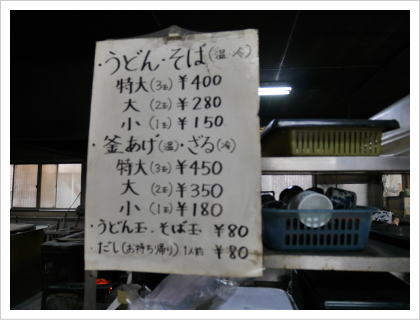 ・うどん・そば(温・冷)
特大(3玉)¥400
大(2玉)¥280
小(1玉)¥150
・釜あげ(温)・ざる(冷)
特大(3玉)¥450
大(2玉)¥350
小(1玉)¥180
・うどん玉・そば玉 ¥80
・だし(お持ち帰り)1人前 ¥80